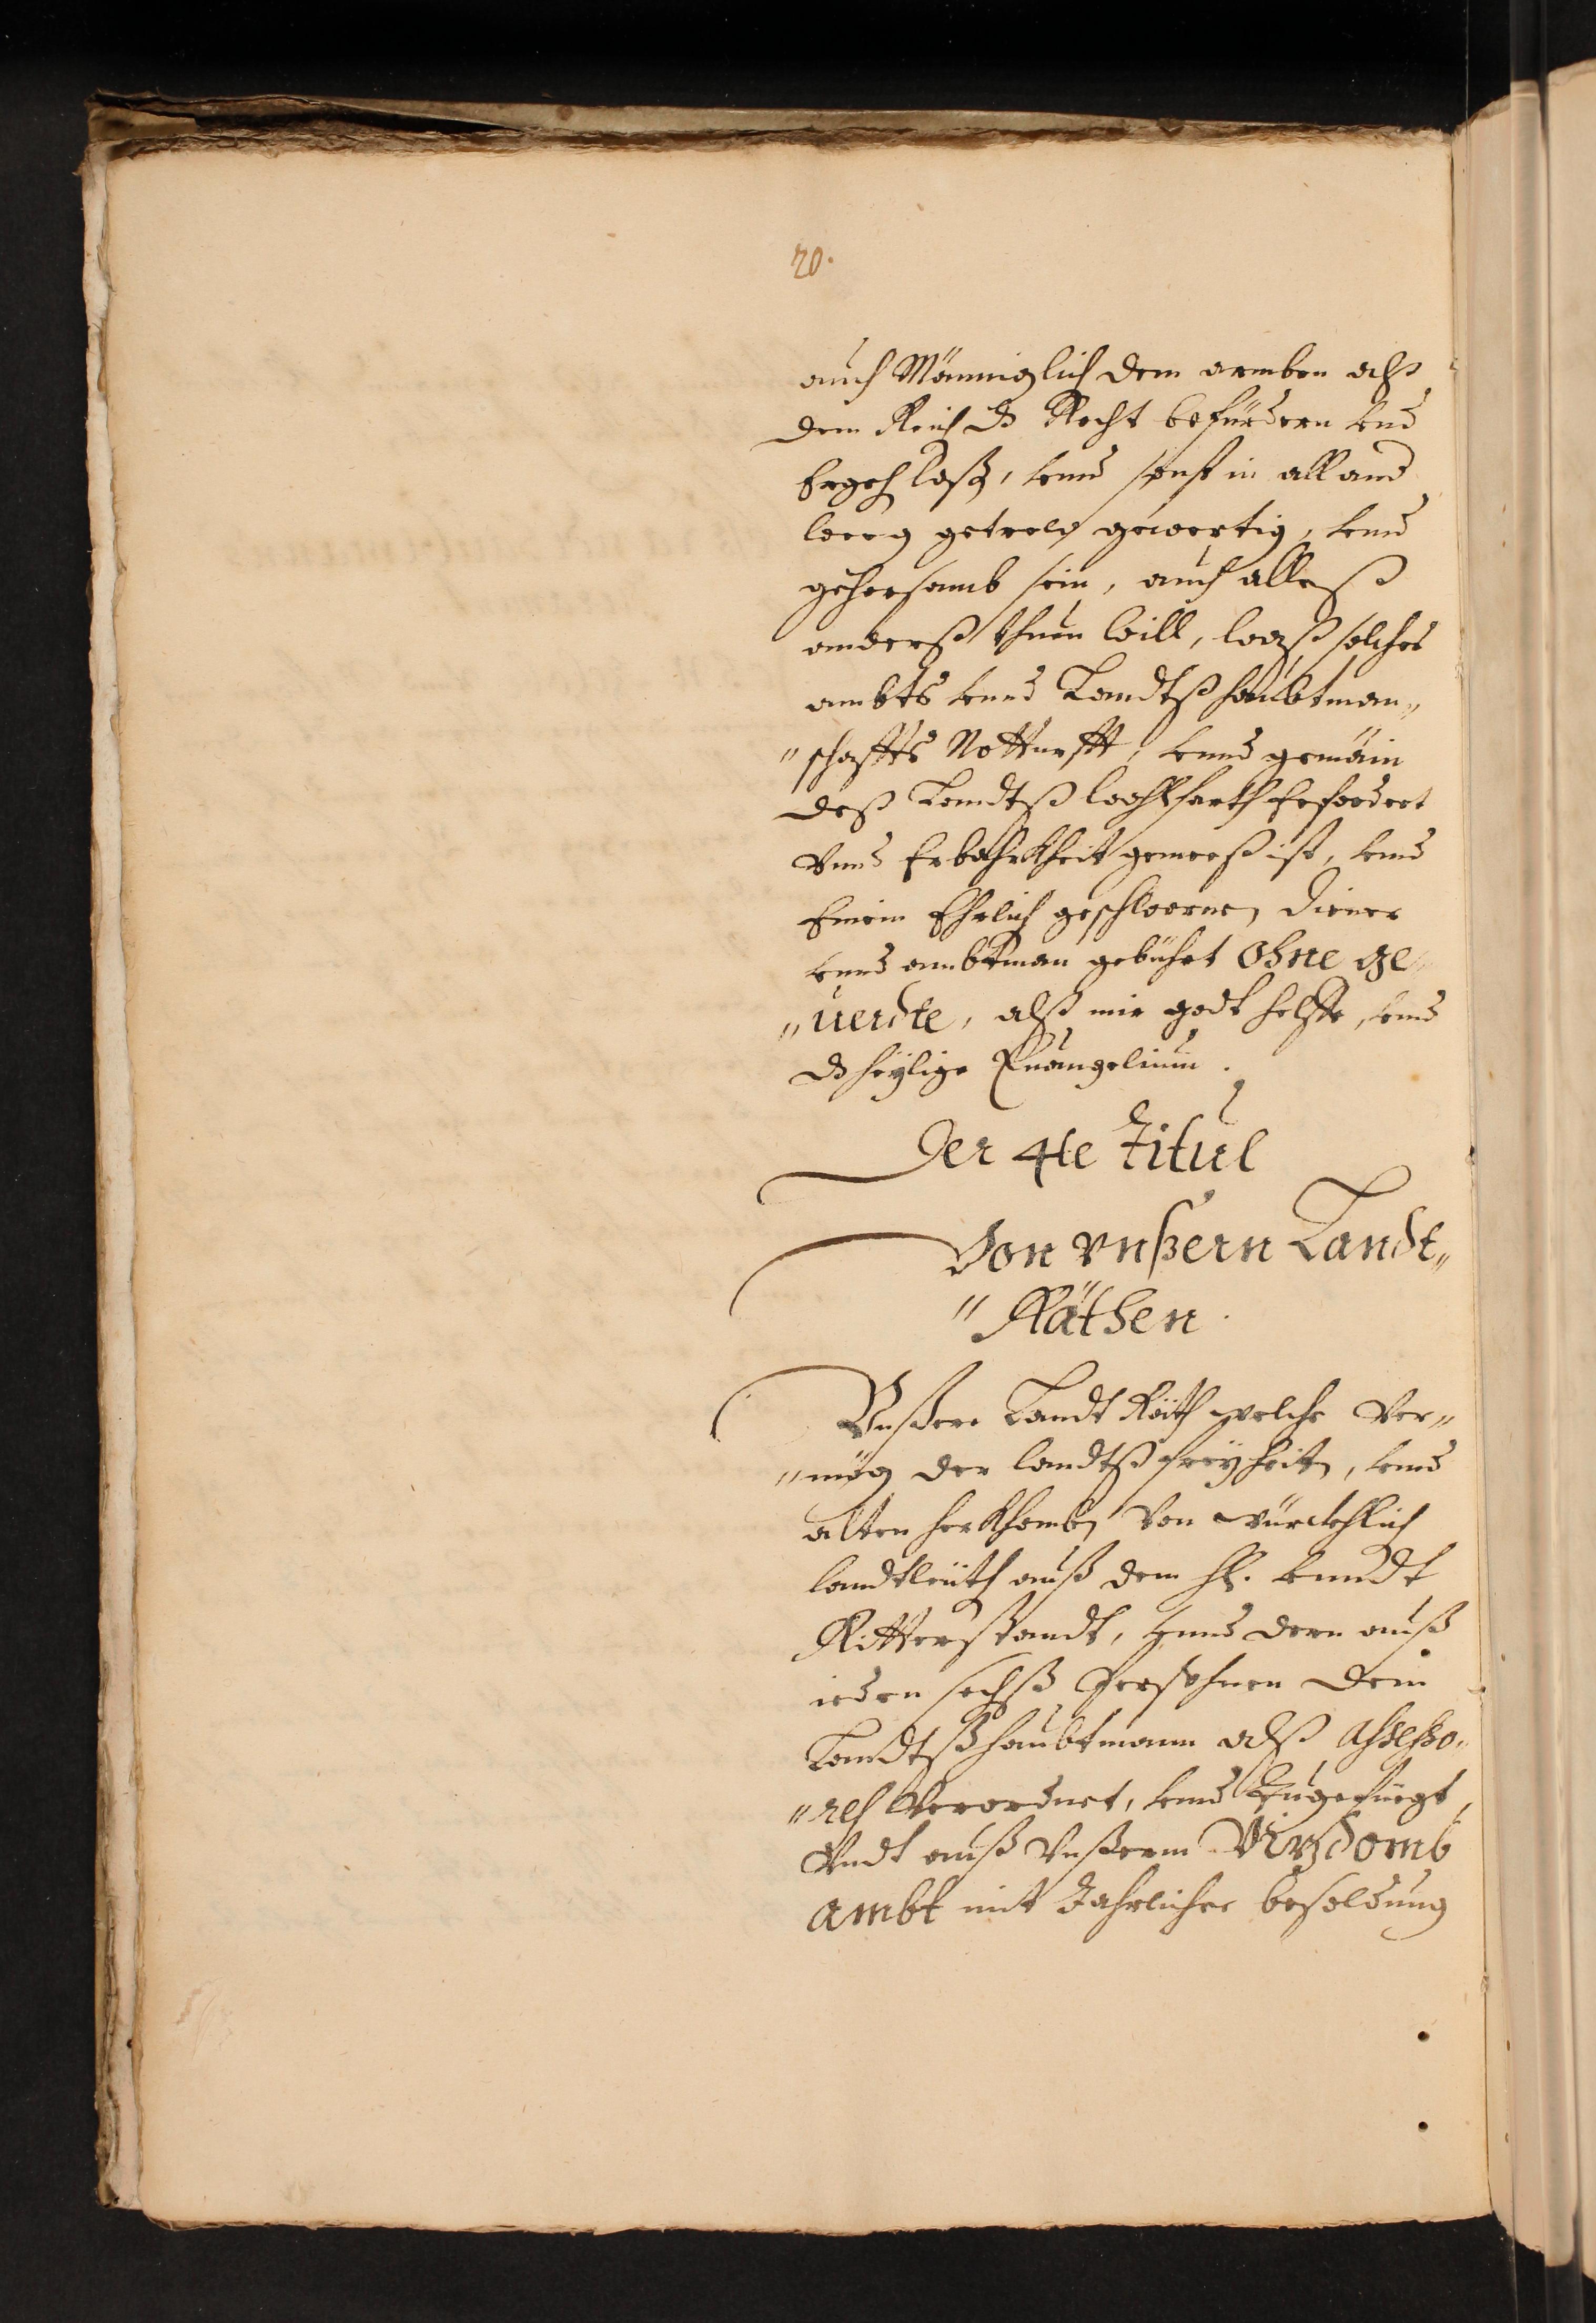 20.
auch Männiglich dem armben alß
dem Reich ds Recht befürdern vnd
Ergeh laß, vnnd sonst in all and
weeg getrew gewertig, vnnd
gehorsamb sein, auch alleß
anderß thuen will, waß solches
ambts vnnd Landtßhaubtman„
„schaffts Notturfft, vnnd gemäin
deß Landtß wohlfarth Erfordert
Vnnd Erbahrkheit gemeeß ist, vnnd
Einem Ehrlich geschwornen Diener
vnnd ambtman gebührt ohne ge„
„uerdte, alß mir godt helffe, vnnd
ds heÿlige Euangelium.
Der 4te Titul
Von vnßern Landt„
„Räthen.
Vnßere Landt Räth welche Ver„
„mög der landtß freÿheiten, vnnd
alten herkhomben Von würckhlich
landtleüth auß dem H. vnndt
Ritterstandt, vnnd dern auß
ieden sechß Persohnen dem
Landtßhaubtmann alß Assesso„
„res Verordnet, vnnd Zugefüegt,
Vndt auß Vnßerm Vizdomb
ambt mit Jahrlicher besoldung